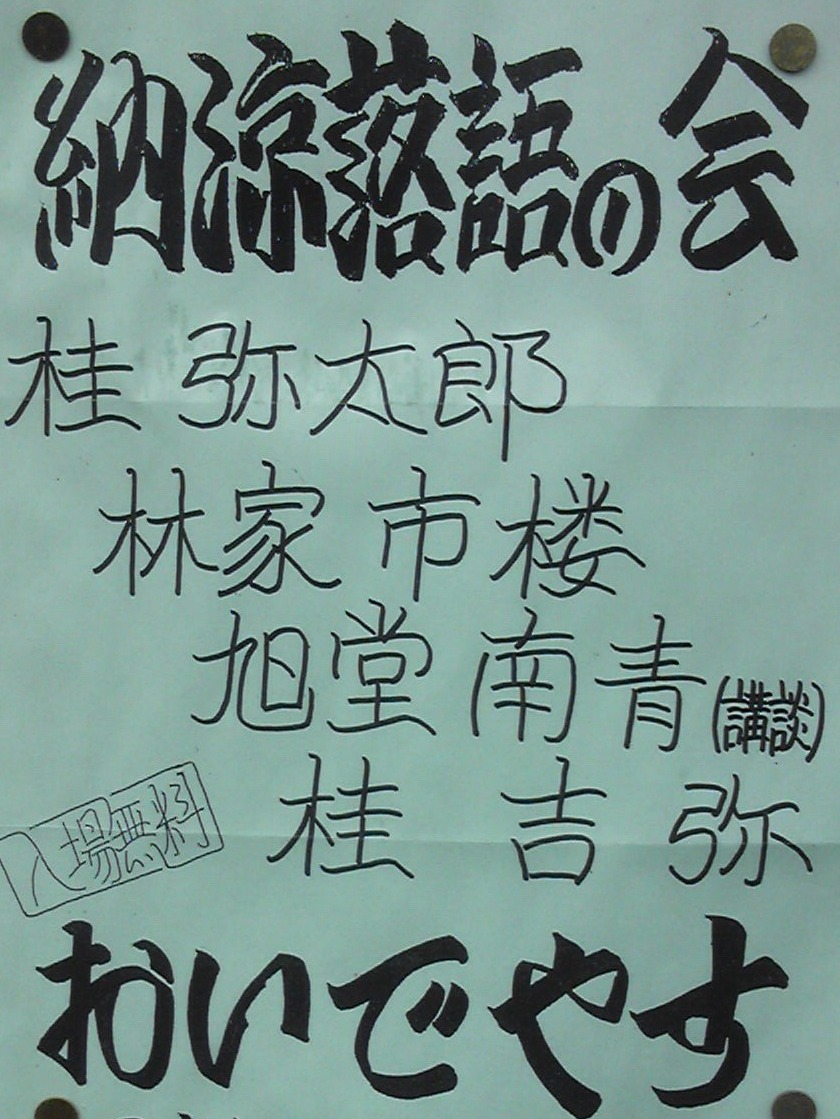 納涼落語の会
桂 弥太郎
林家 市楼
旭堂 南青(講談)
桂 吉弥
入場無料
おいでやす